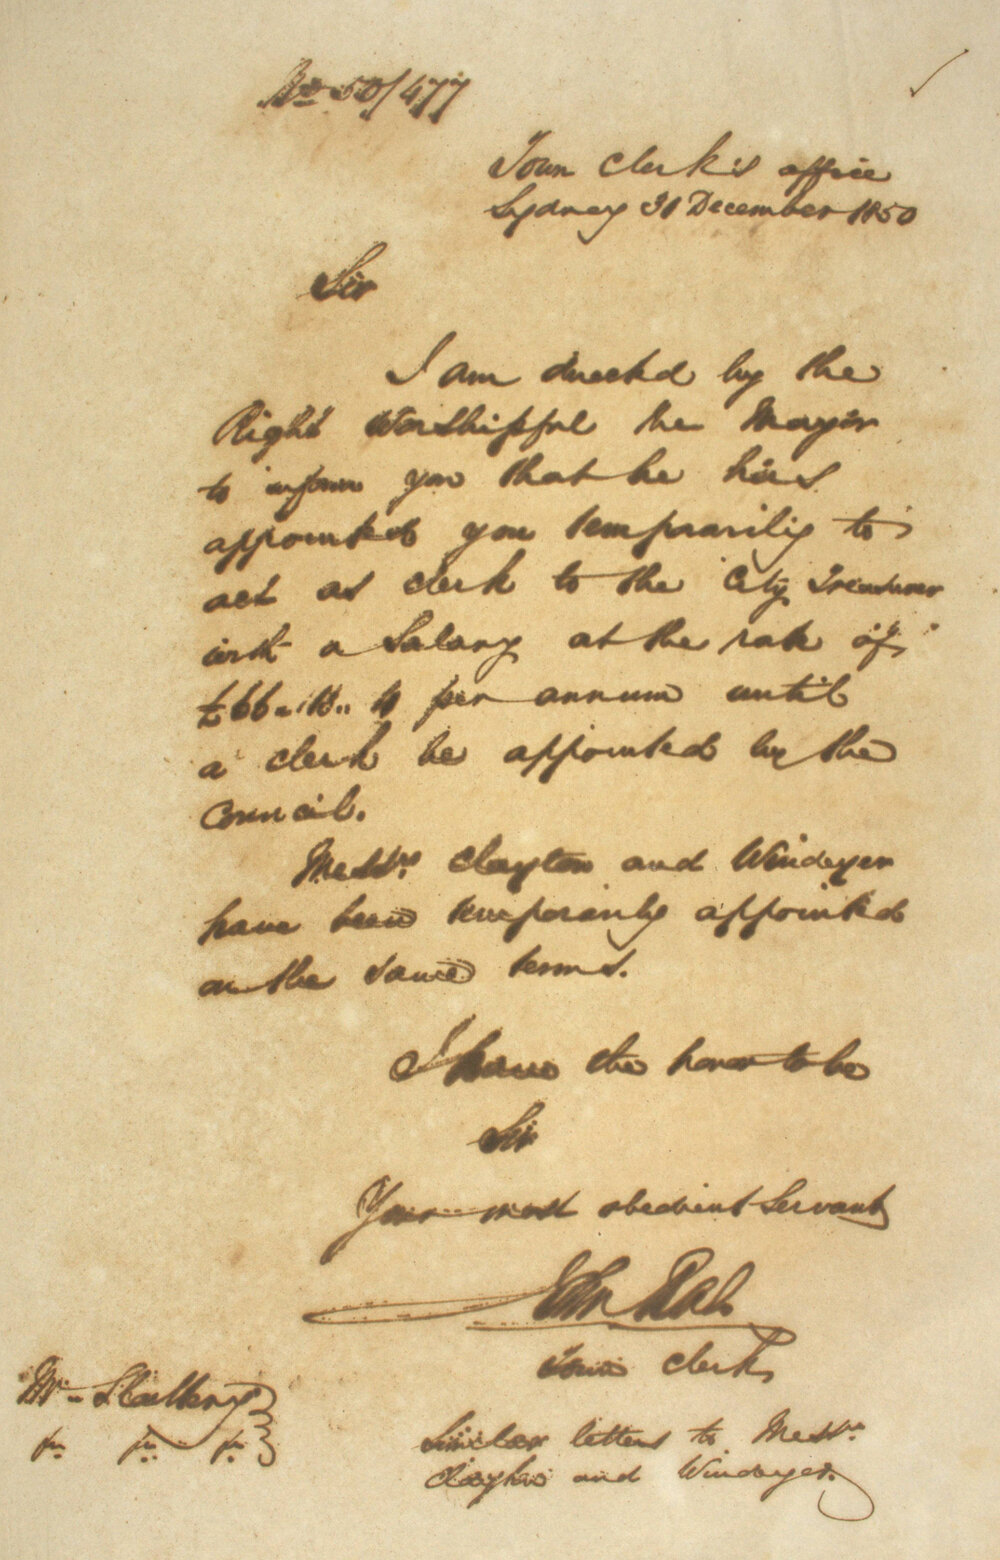 No 50/477
Town Clerk's office
Sydney 31 December 1850
Sir
I am directed by the
Right Worshipful the Mayor
to inform you that he has
appointed you temporarily to
act as clerk to the City Treasurer
with a Salary at the rate of
£66.. 13.. 4 per annum until
a clerk be appointed by the
Council.
Messrs. Clayton and Windeyer
have been temporarily appointed
on the same terms.
I have the honor to be
Sir
Your most obedient Servant
John Rae
Town Clerk
Mr. Slattery
Similar letters to Messrs.
Clayton and Windeyer.